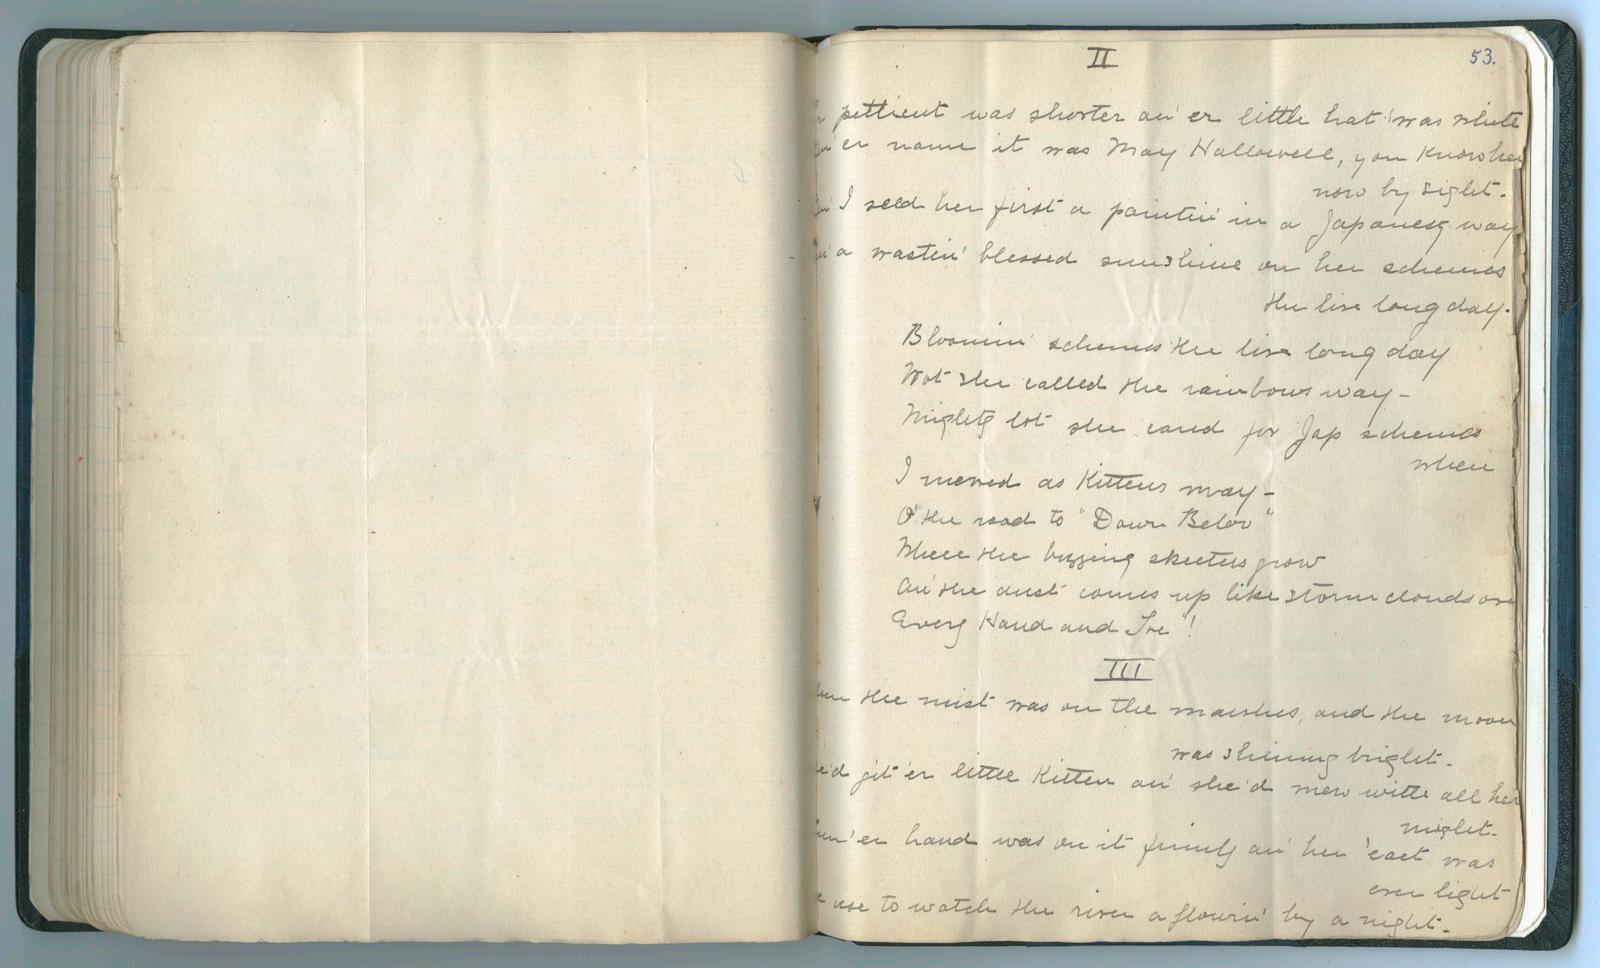 53.
II
pettient was shorter an' er little hat was white
er name it was May Hallowell, you know her
now by sight.
I seed her first a paintin' in a Japanesy way
a wastin' blessed sunshine on her schemes
the live long day.
Bloomin' schemes the live long day
Wot she called the rainbows way -
Mighty lot she cared for Jap schemes
when
I mewed as Kittens may -
O' the road to "Down Below"
Where the buzzing skeeters grow
An' the dust comes up like storm clouds over
Every Hand and Toe!
III
the mist was on the marshes, and the moon
was shining bright.
git 'er little Kitten an' she'd mew with all her
might.
'er hand was on it firmly an' her 'eart was
ever light
use to watch the river a flowin' by a night.